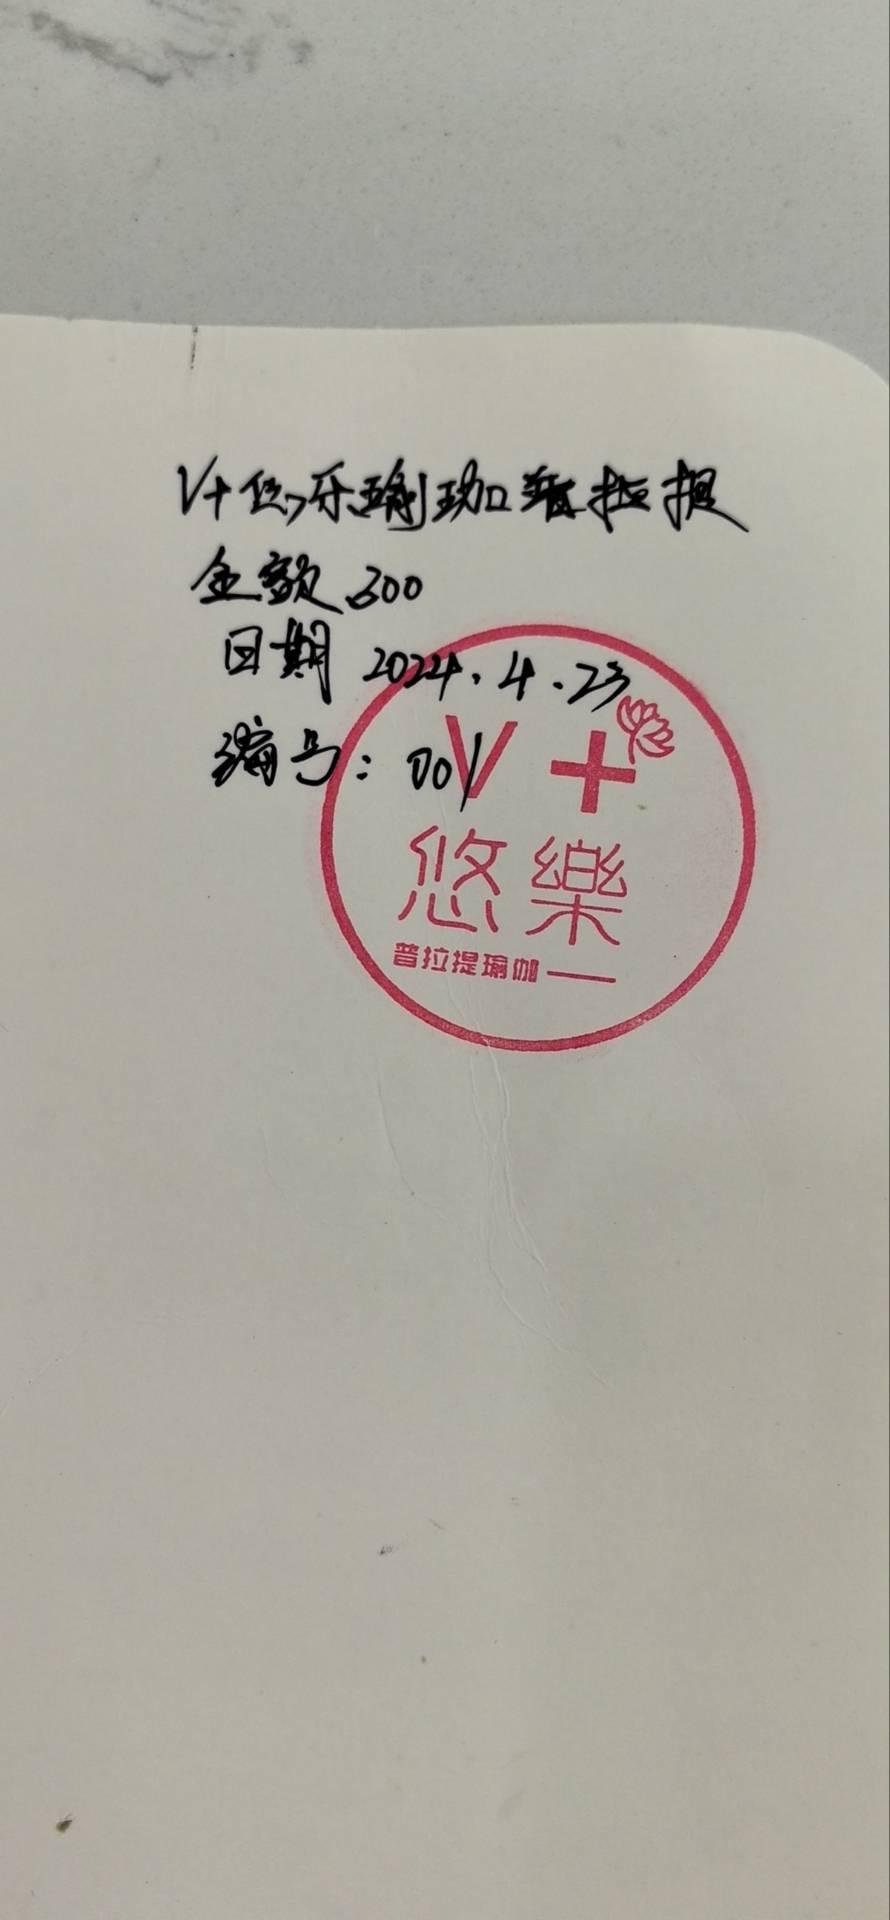 V+悠乐瑜珈普拉提
金额300
日期 2024.4.23
编号：001
V+
悠樂
普拉提瑜伽